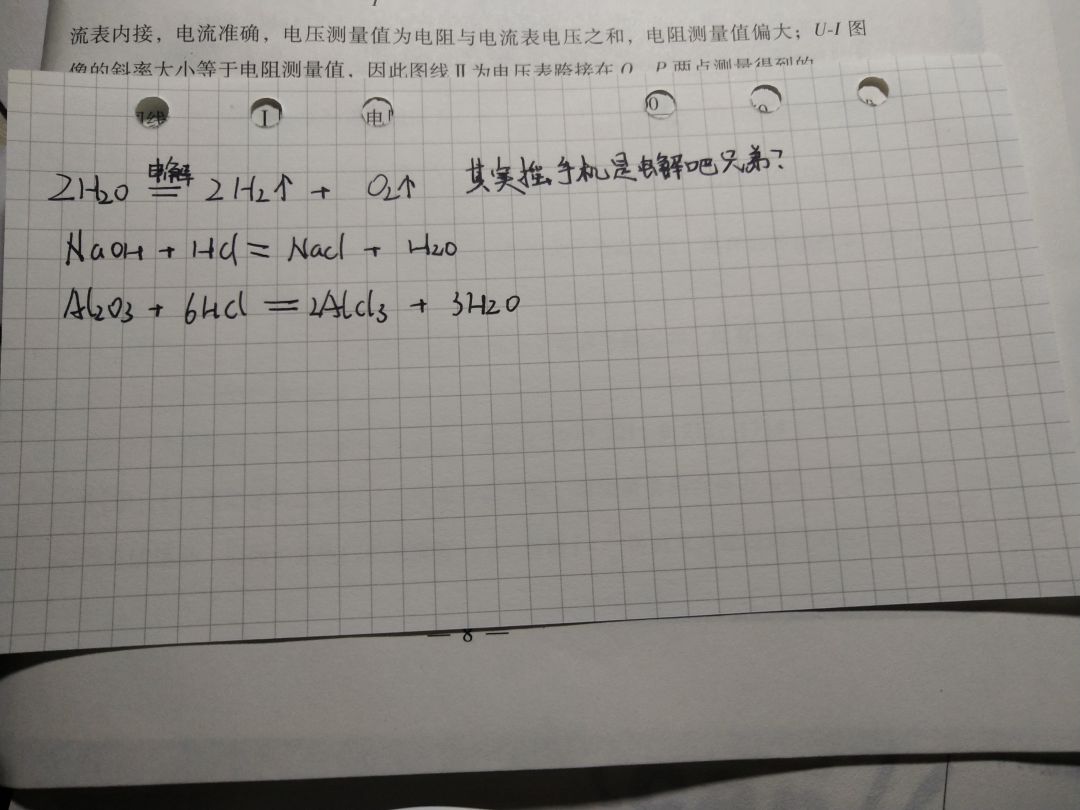 流表内接，电流准确，电压测量值为电阻与电流表电压之和，电阻测量值偏大；U-I 图
像的斜率大小等于电阻测量值，因此图线 Ⅱ 为电压表跨接在 O、P 两点测量得到的
线 I 电 0
2H₂O 电解= 2H₂↑ + O₂↑ 其实摇手机是电解吧兄弟？
NaOH + HCl = NaCl + H₂O
Al₂O₃ + 6HCl = 2AlCl₃ + 3H₂O
— 8 —